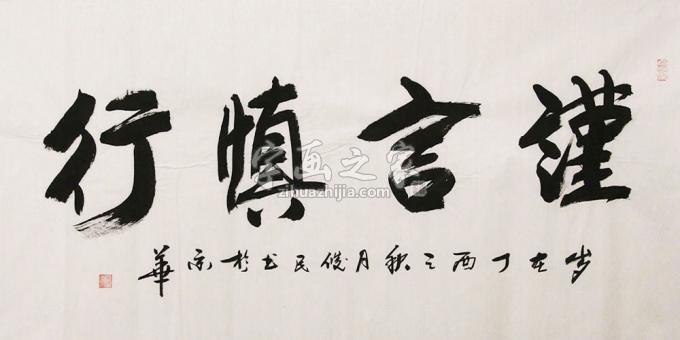 謹言慎行
歲在丁酉之秋月俊民書於京華
字画之家
zihuazhijia.com